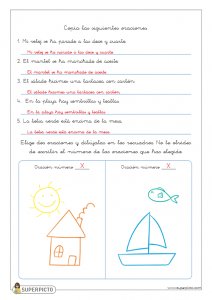 Copia las siguientes oraciones
1. Mi reloj se ha parado a las doce y cuarto
Mi reloj se ha parado a las doce y cuarto
2. El mantel se ha manchado de aceite
El mantel se ha manchado de aceite
3. El sábado hicimos una barbacoa con carbón.
El sábado hicimos una barbacoa con carbón.
4. En la playa hay sombrillas y toallas
En la playa hay sombrillas y toallas
5. La bola verde está encima de la mesa.
La bola verde está encima de la mesa.
Elige dos oraciones y dibújalas en los recuadros. No te olvides
de escribir el número de las oraciones que has elegido.
Oración número X
Oración número X
SUPERPICTO